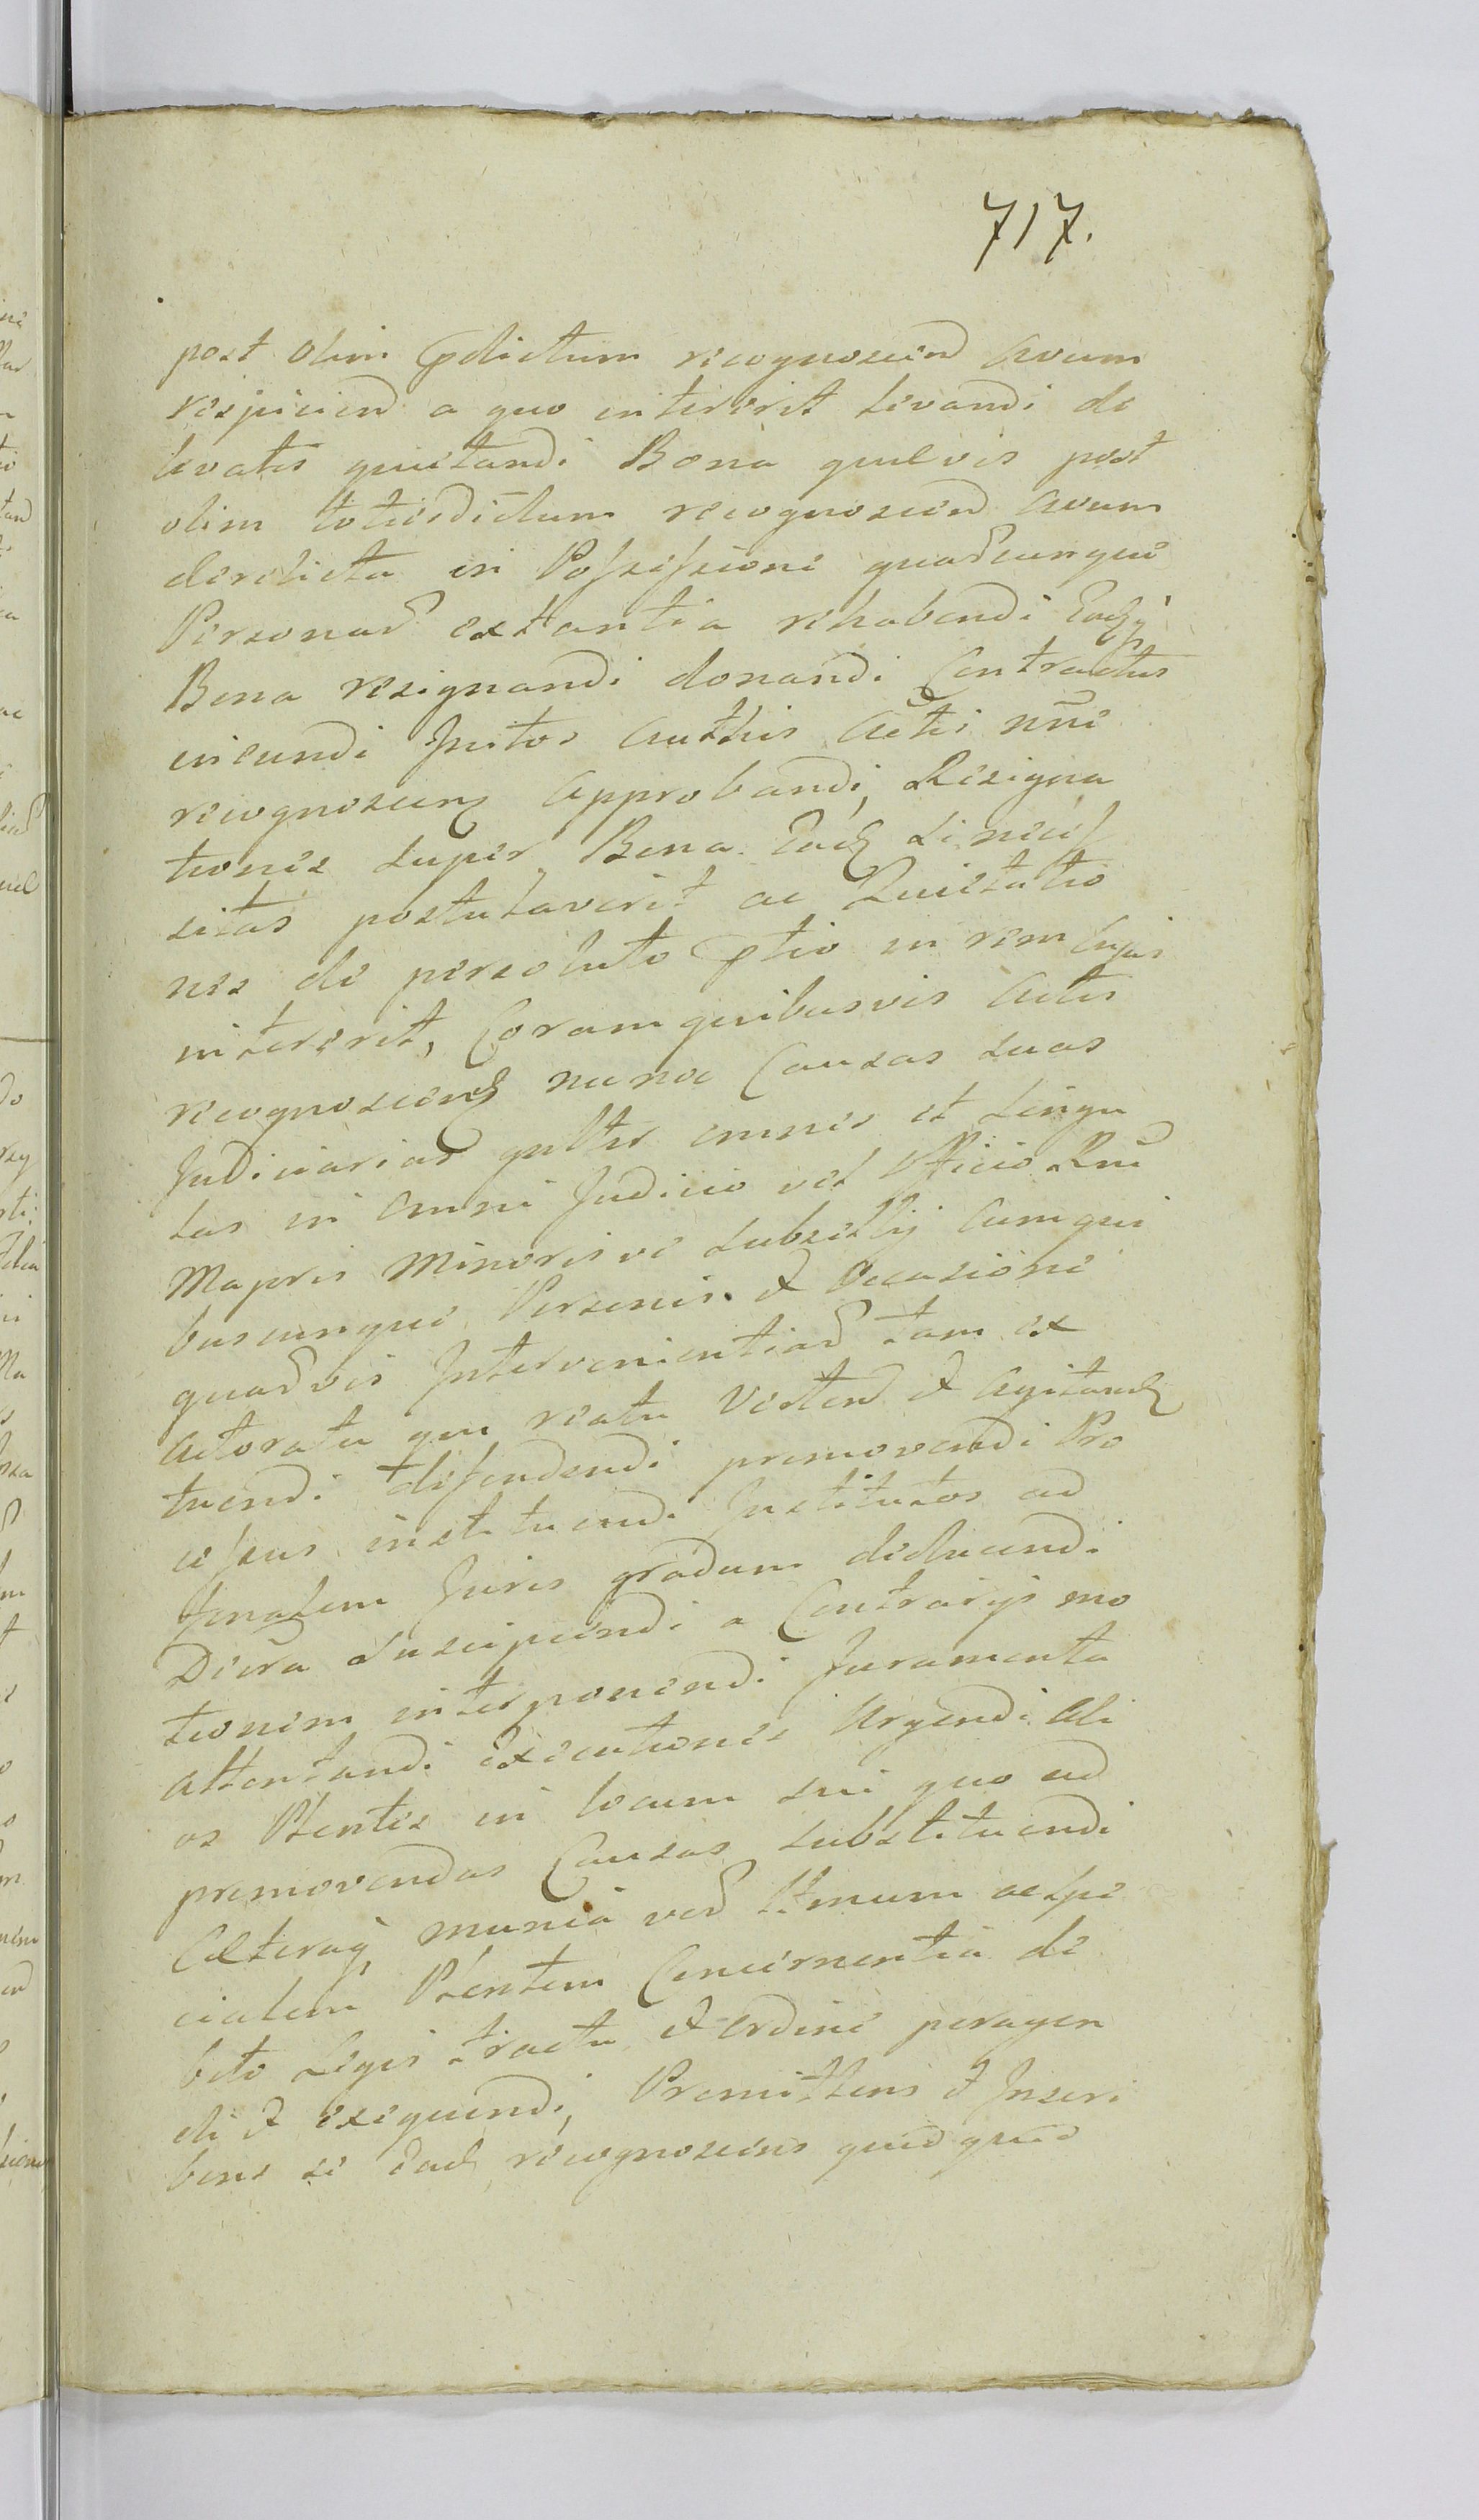 717.
post olim pdictum recognoscend Avum
respiciend a quo intererit levandi de
levatis quietandi Bona quævis post
olim totiesdictum recognoscend Avum
derelicta in Possessione quarumque
Personar extantia rehabendi Eadq
Bona resignandi donandi Contractus
ineundi Initos Authis Acti nni
recognoscen Approbandi, Resigna
tiones super Bona Ead si neces
sitas postulaverit ac Quietatio
nes de persoluto ptio in rem cujus
intererit, Coram quibusvis Actis
recognoscend nunc Causas suas
Judiciarias gnlter omnes et singu
las in omni Judicio vel Officio Rni
Majoris Minorisve subsellij cum qui
buscunque Personis & Occasione
quarvis Intervenientiar tam ex
Actoratu qm reatu Verten & Agitand
tuendi defendendi promovendi Pro
cessus instituendi Institutos ad
finalem Juris gradum deducendi
Decra suscipiendi a Contrarijs mo
tionem interponendi Juramenta
attentandi Executiones Urgendi Ali
os Plentes in locum sui quo ad
promovendas Causas substituendi
Cæteraq munia ver ltmum ac spe
cialem Plentem Concernentia de
bito Legis tractu & ordine peragen
di & exequendi, Promittens & Inscri
bens se Ead recognoscens quid quid